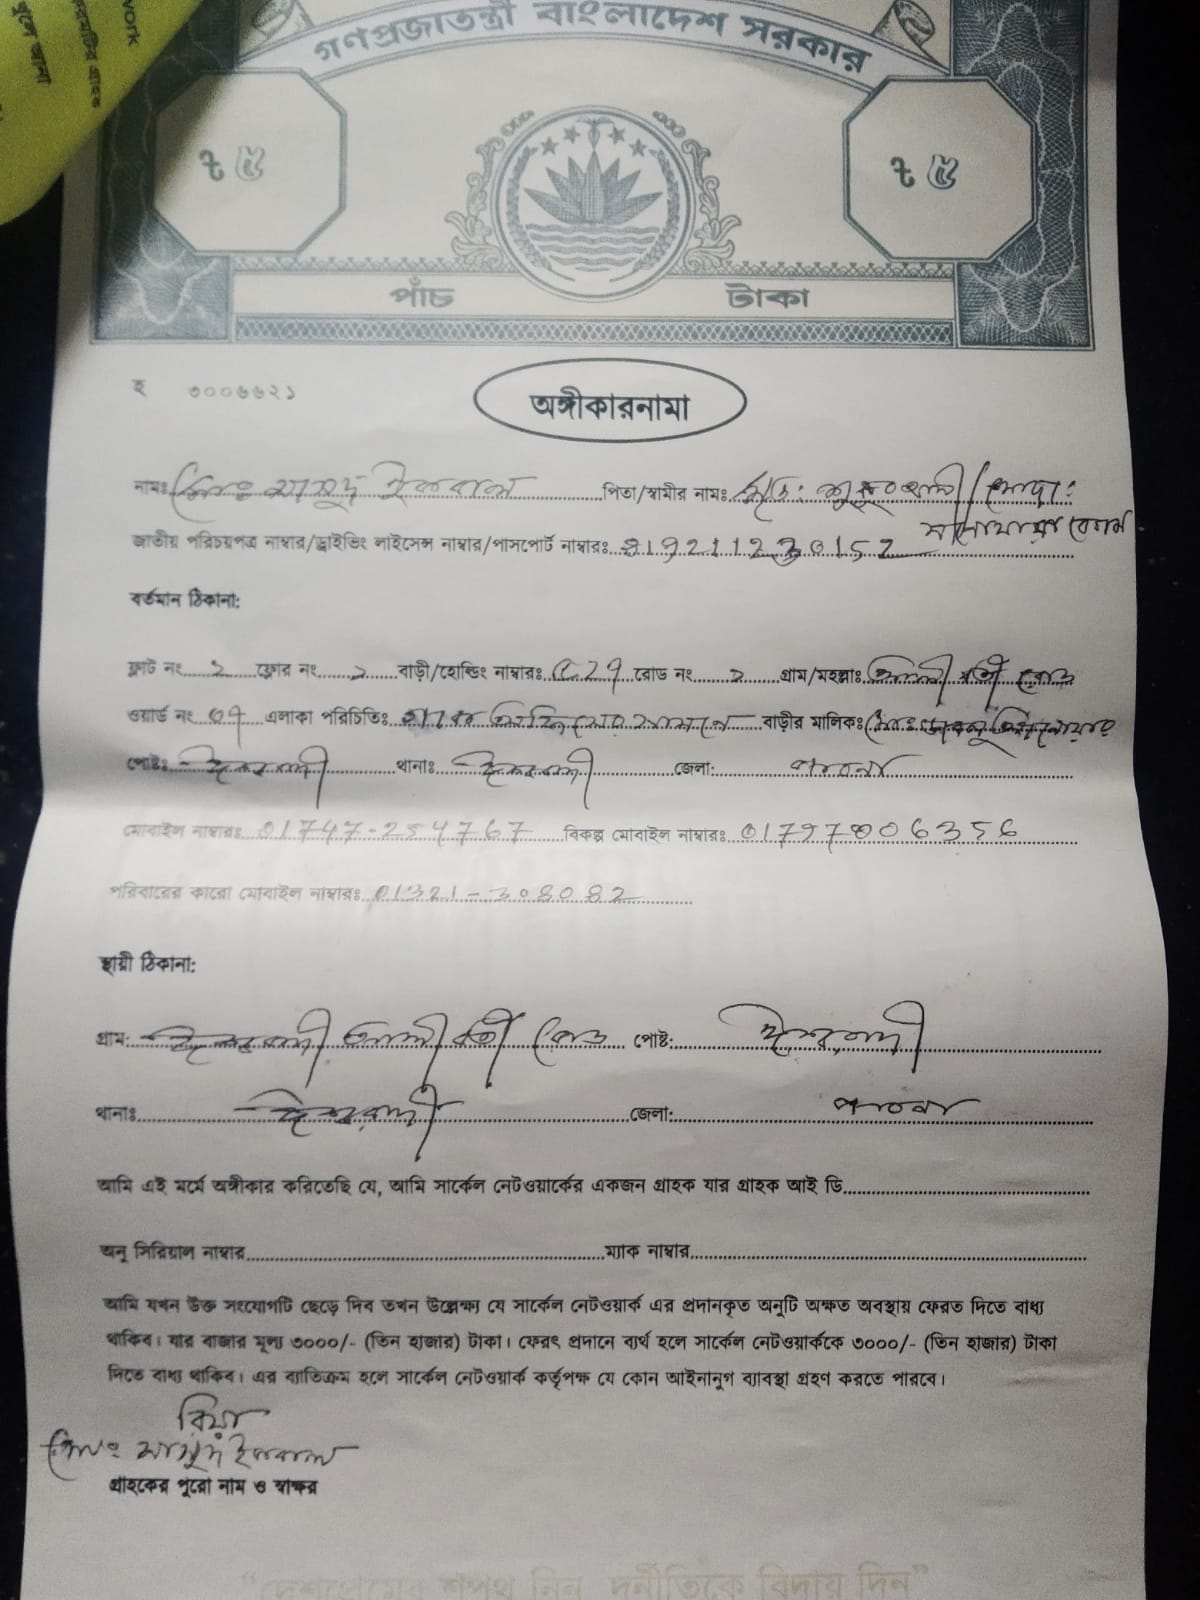 work
গণপ্রজাতন্ত্রী বাংলাদেশ সরকার
৳ ৫ ৳ ৫
পাঁচ টাকা
হ ৩০০৬৬২১
অঙ্গীকারনামা
নামঃ মোঃ মাসুদ ইকবাল পিতা/স্বামীর নামঃ মৃত: /মোছা:
মনোয়ারা বেগম
জাতীয় পরিচয়পত্র নাম্বার/ড্রাইভিং লাইসেন্স নাম্বার/পাসপোর্ট নাম্বারঃ
বর্তমান ঠিকানা:
ফ্লাট নং ২ ফ্লোর নং ২ বাড়ী/হোল্ডিং নাম্বারঃ রোড নং ২ গ্রাম/মহল্লাঃ রোড
ওয়ার্ড নং ০৭ এলাকা পরিচিতিঃ বাড়ীর মালিকঃ
পোষ্টঃ ঈশ্বরদী থানাঃ ঈশ্বরদী জেলা: পাবনা
মোবাইল নাম্বারঃ 01747-254767 বিকল্প মোবাইল নাম্বারঃ
পরিবারের কারো মোবাইল নাম্বারঃ 01321-308082
স্থায়ী ঠিকানা:
গ্রাম: ঈশ্বরদী রোড পোষ্ট: ঈশ্বরদী
থানাঃ ঈশ্বরদী জেলা: পাবনা
আমি এই মর্মে অঙ্গীকার করিতেছি যে, আমি সার্কেল নেটওয়ার্কের একজন গ্রাহক যার গ্রাহক আই ডি
অনু সিরিয়াল নাম্বার ম্যাক নাম্বার
আমি যখন উক্ত সংযোগটি ছেড়ে দিব তখন উল্লেক্ষ্য যে সার্কেল নেটওয়ার্ক এর প্রদানকৃত অনুটি অক্ষত অবস্থায় ফেরত দিতে বাধ্য
থাকিব। যার বাজার মূল্য ৩০০০/- (তিন হাজার) টাকা। ফেরৎ প্রদানে ব্যর্থ হলে সার্কেল নেটওয়ার্ককে ৩০০০/- (তিন হাজার) টাকা
দিতে বাধ্য থাকিব। এর ব্যাতিক্রম হলে সার্কেল নেটওয়ার্ক কর্তৃপক্ষ যে কোন আইনানুগ ব্যাবস্থা গ্রহণ করতে পারবে।
রিয়া
মোঃ মাসুদ ইকবাল
গ্রাহকের পুরো নাম ও স্বাক্ষর
“দেশপ্রেমের শপথ নিন, দুর্নীতিকে বিদায় দিন”